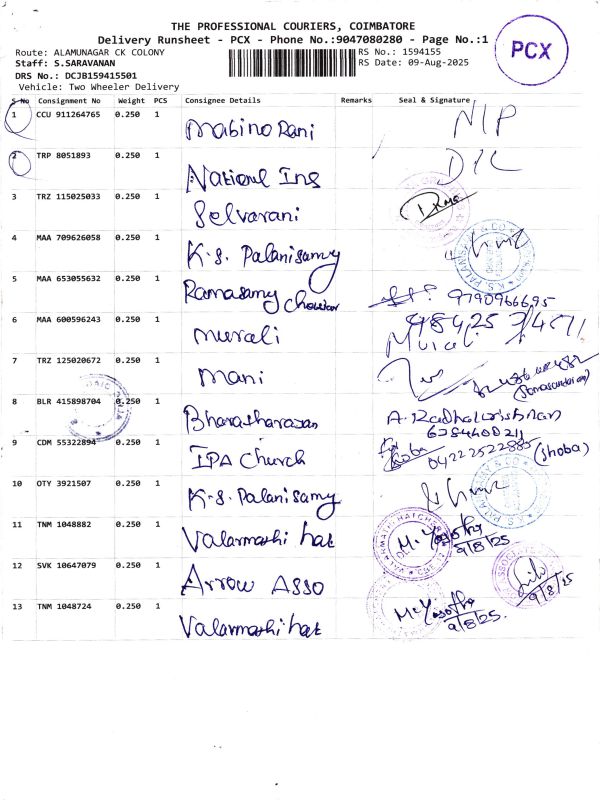 THE PROFESSIONAL COURIERS, COIMBATORE
Delivery Runsheet - PCX - Phone No.:9047080280 - Page No.:1
PCX
Route: ALAMUNAGAR CK COLONY RS No.: 1594155
Staff: S.SARAVANAN RS Date: 09-Aug-2025
DRS No.: DCJB159415501
Vehicle: Two Wheeler Delivery
S No Consignment No Weight PCS Consignee Details Remarks Seal & Signature
1 CCU 911264765 0.250 1 Mabino Rani N/P
2 TRP 8051893 0.250 1 National Ins D/L
3 TRZ 115025033 0.250 1 Selvarani
4 MAA 709626058 0.250 1 K.S. Palanisamy
5 MAA 653055632 0.250 1 Ramasamy 9790966695
6 MAA 600596243 0.250 1 Murali Murali
7 TRZ 125020672 0.250 1 Mani
8 BLR 415898704 0.250 1 Bharatharajan A. Radhakrishnan
9 CDM 55322894 0.250 1 IPA Church 04222522885 (Shoba)
10 OTY 3921507 0.250 1 K.S. Palanisamy
11 TNM 1048882 0.250 1 Valarmathi hat 9/8/25
12 SVK 10647079 0.250 1 Arrow ASSO 9/8/25
13 TNM 1048724 0.250 1 Valarmathi hat 9/8/25.